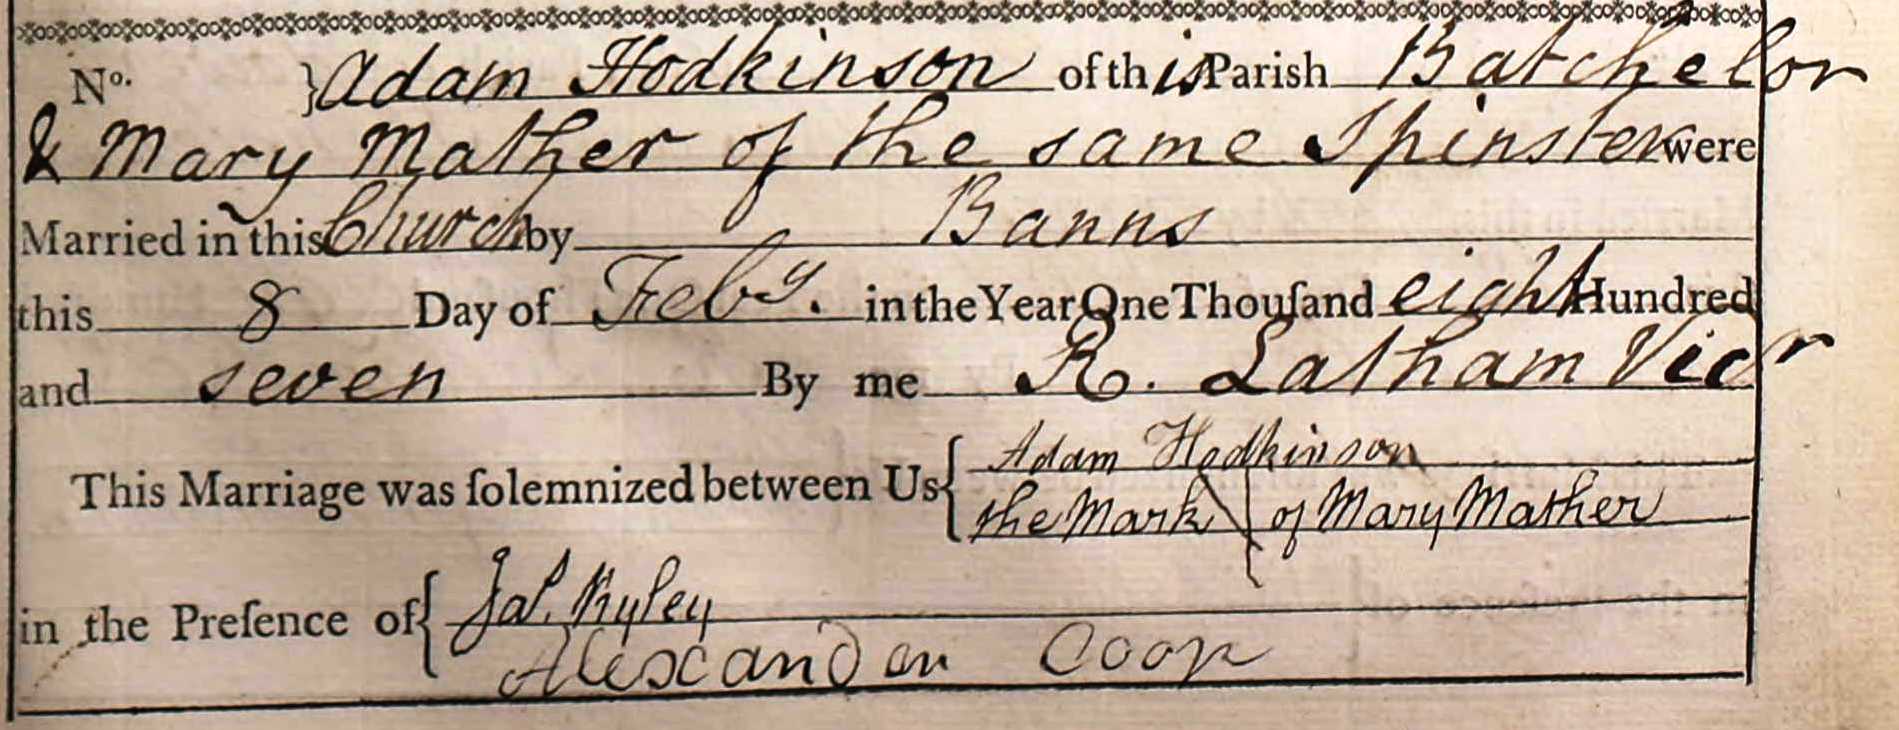 No. } Adam Hodkinson of this Parish Batchelor
& Mary Mather of the same Spinster were
Married in this Church by Banns
this 8 Day of Feby. in the Year One Thouſand eight Hundred
and seven By me R. Latham Vicr
This Marriage was ſolemnized between Us { Adam Hodkinson
the Mark X of Mary Mather
in the Preſence of { Jas. Ryley
Alexander Coop